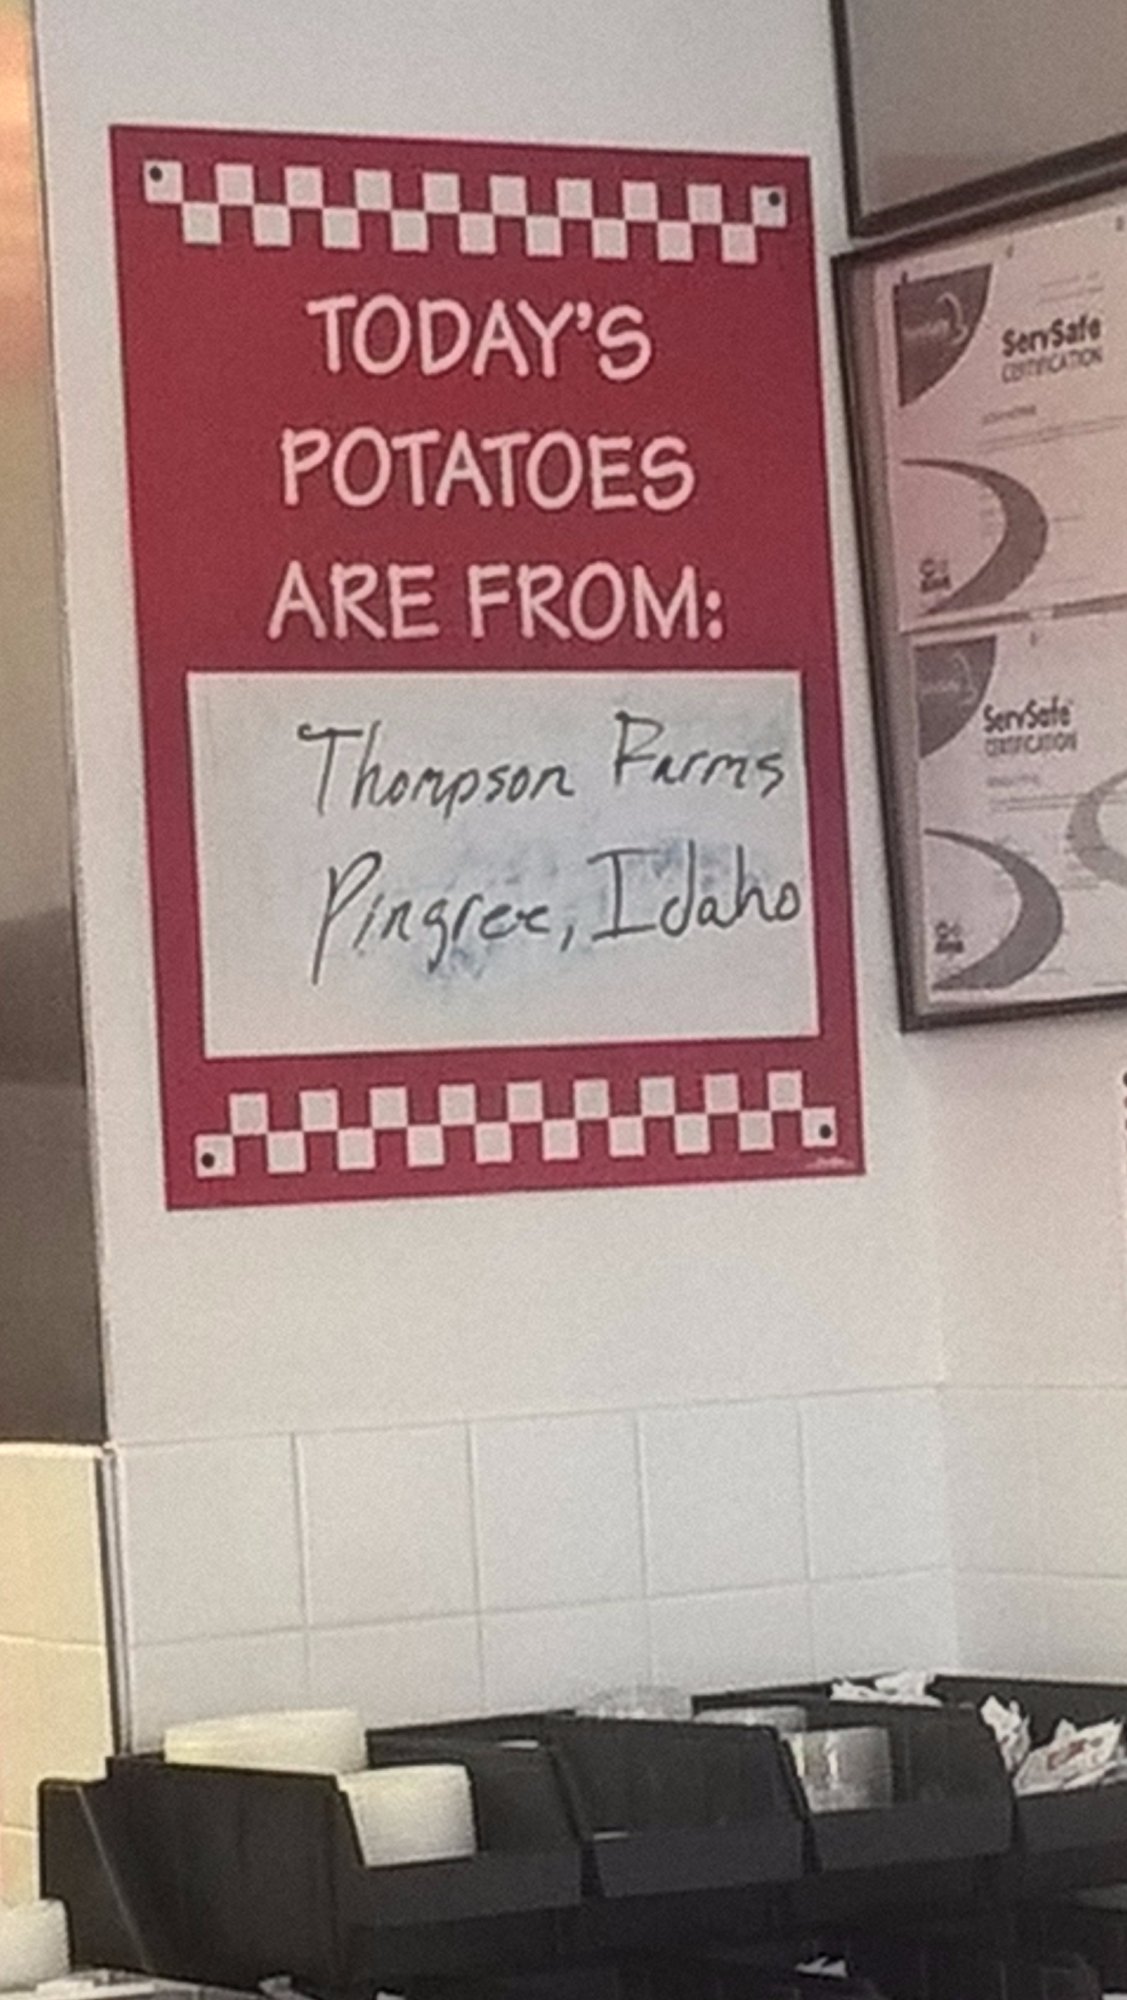 TODAY'S
POTATOES
ARE FROM:
Thompson Farms
Pingree, Idaho
ServSafe
CERTIFICATION
ServSafe
CERTIFICATION